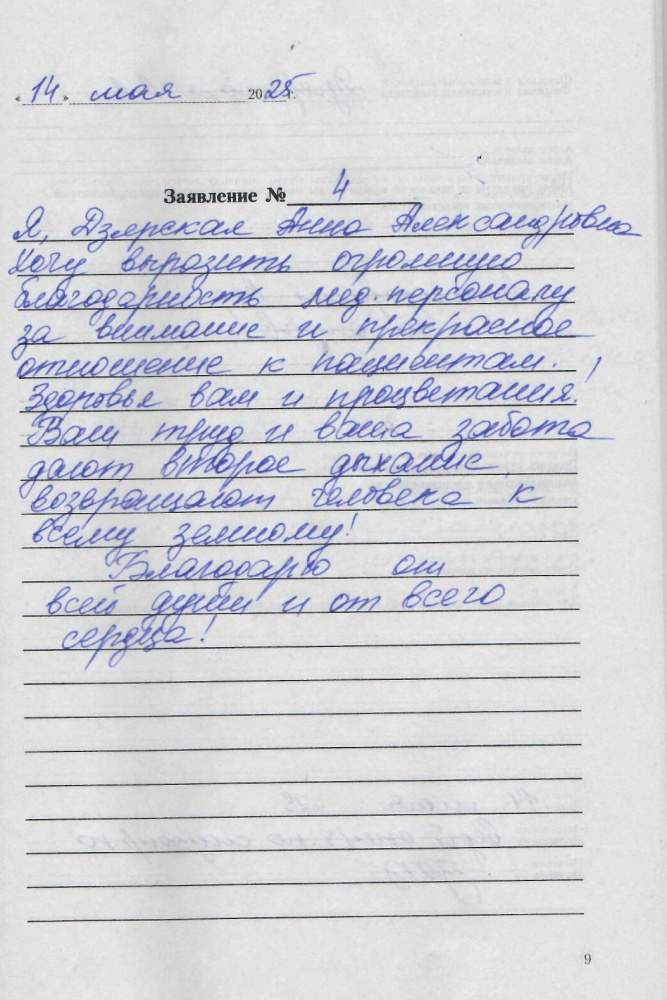 « 14 » мая 2025 г.
Заявление № 4
Я, Дзярская Анна Александровна
хочу выразить огромную
благодарность мед. персоналу
за внимание и прекрасное
отношение к пациентам.
Здоровья вам и процветания!
Ваш труд и ваша забота
дают второе дыхание,
возвращают человека к
всему земному!
Благодарю от
всей души и от всего
сердца!
9